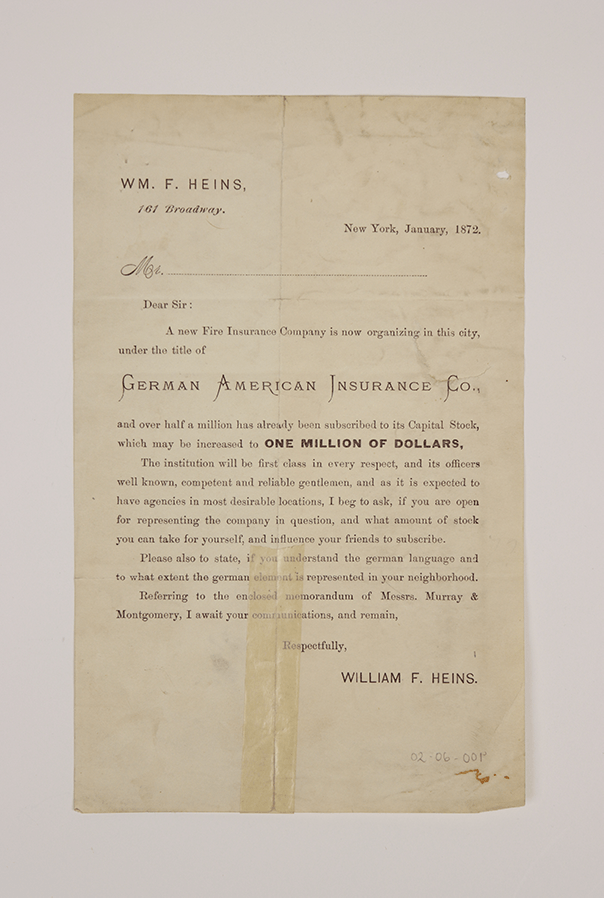 WM. F. HEINS,
161 Broadway.
New York, January, 1872.
Mr.
Dear Sir:
A new Fire Insurance Company is now organizing in this city,
under the title of
GERMAN AMERICAN INSURANCE CO.,
and over half a million has already been subscribed to its Capital Stock,
which may be increased to ONE MILLION OF DOLLARS,
The institution will be first class in every respect, and its officers
well known, competent and reliable gentlemen, and as it is expected to
have agencies in most desirable locations, I beg to ask, if you are open
for representing the company in question, and what amount of stock
you can take for yourself, and influence your friends to subscribe.
Please also to state, if you understand the german language and
to what extent the german element is represented in your neighborhood.
Referring to the enclosed memorandum of Messrs. Murray &
Montgomery, I await your communications, and remain,
Respectfully,
WILLIAM F. HEINS.
02-06-001